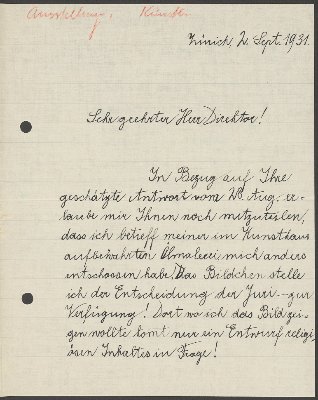 Ausstellung. Künstler
Zürich 2. Sept. 1931.
Sehr geehrter Herr Direktor!
In Bezug auf Ihre
geschätzte Antwort vom 28. Aug. er-
laube mir Ihnen noch mitzuteilen,
dass ich betreff meiner im Kunsthaus
aufbewahrten mich anders
entschossen habe! Das Bildchen stelle
ich der Entscheidung der Juri - zur
Verfügung! Dort wo ich das Bild zei-
gen wollte komt nur ein Entwurf religi-
ösen Inhaltes in Frage!